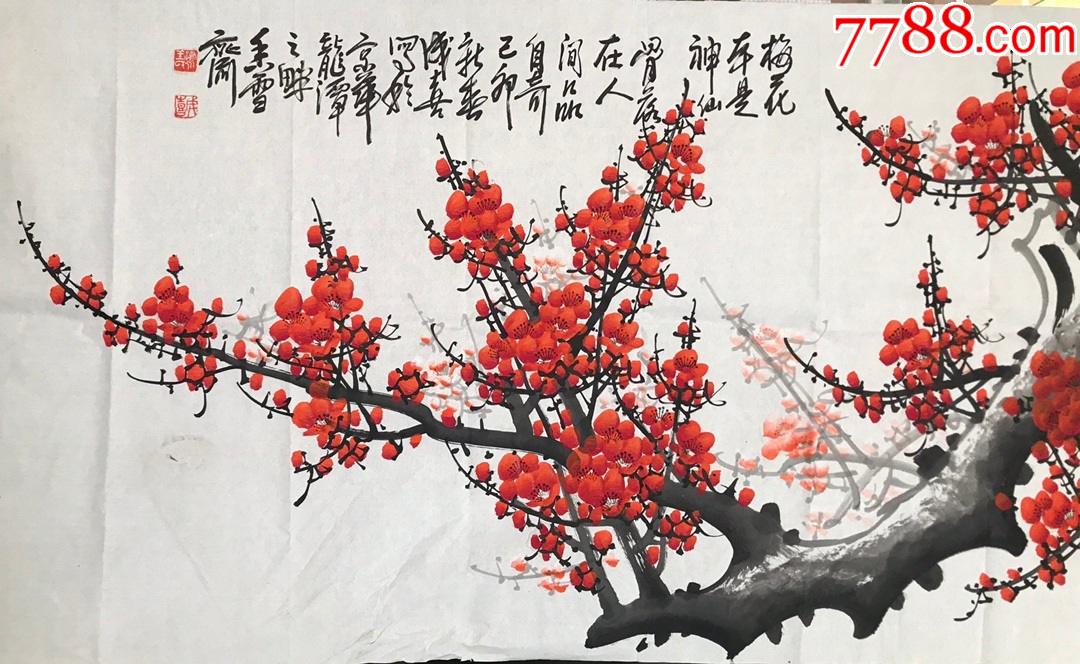 7788.com
梅花
本是
神仙
骨落
在人
间品
自奇
己卯
新春
成喜
写於
京華
龍潭
之畔
香雪
齋